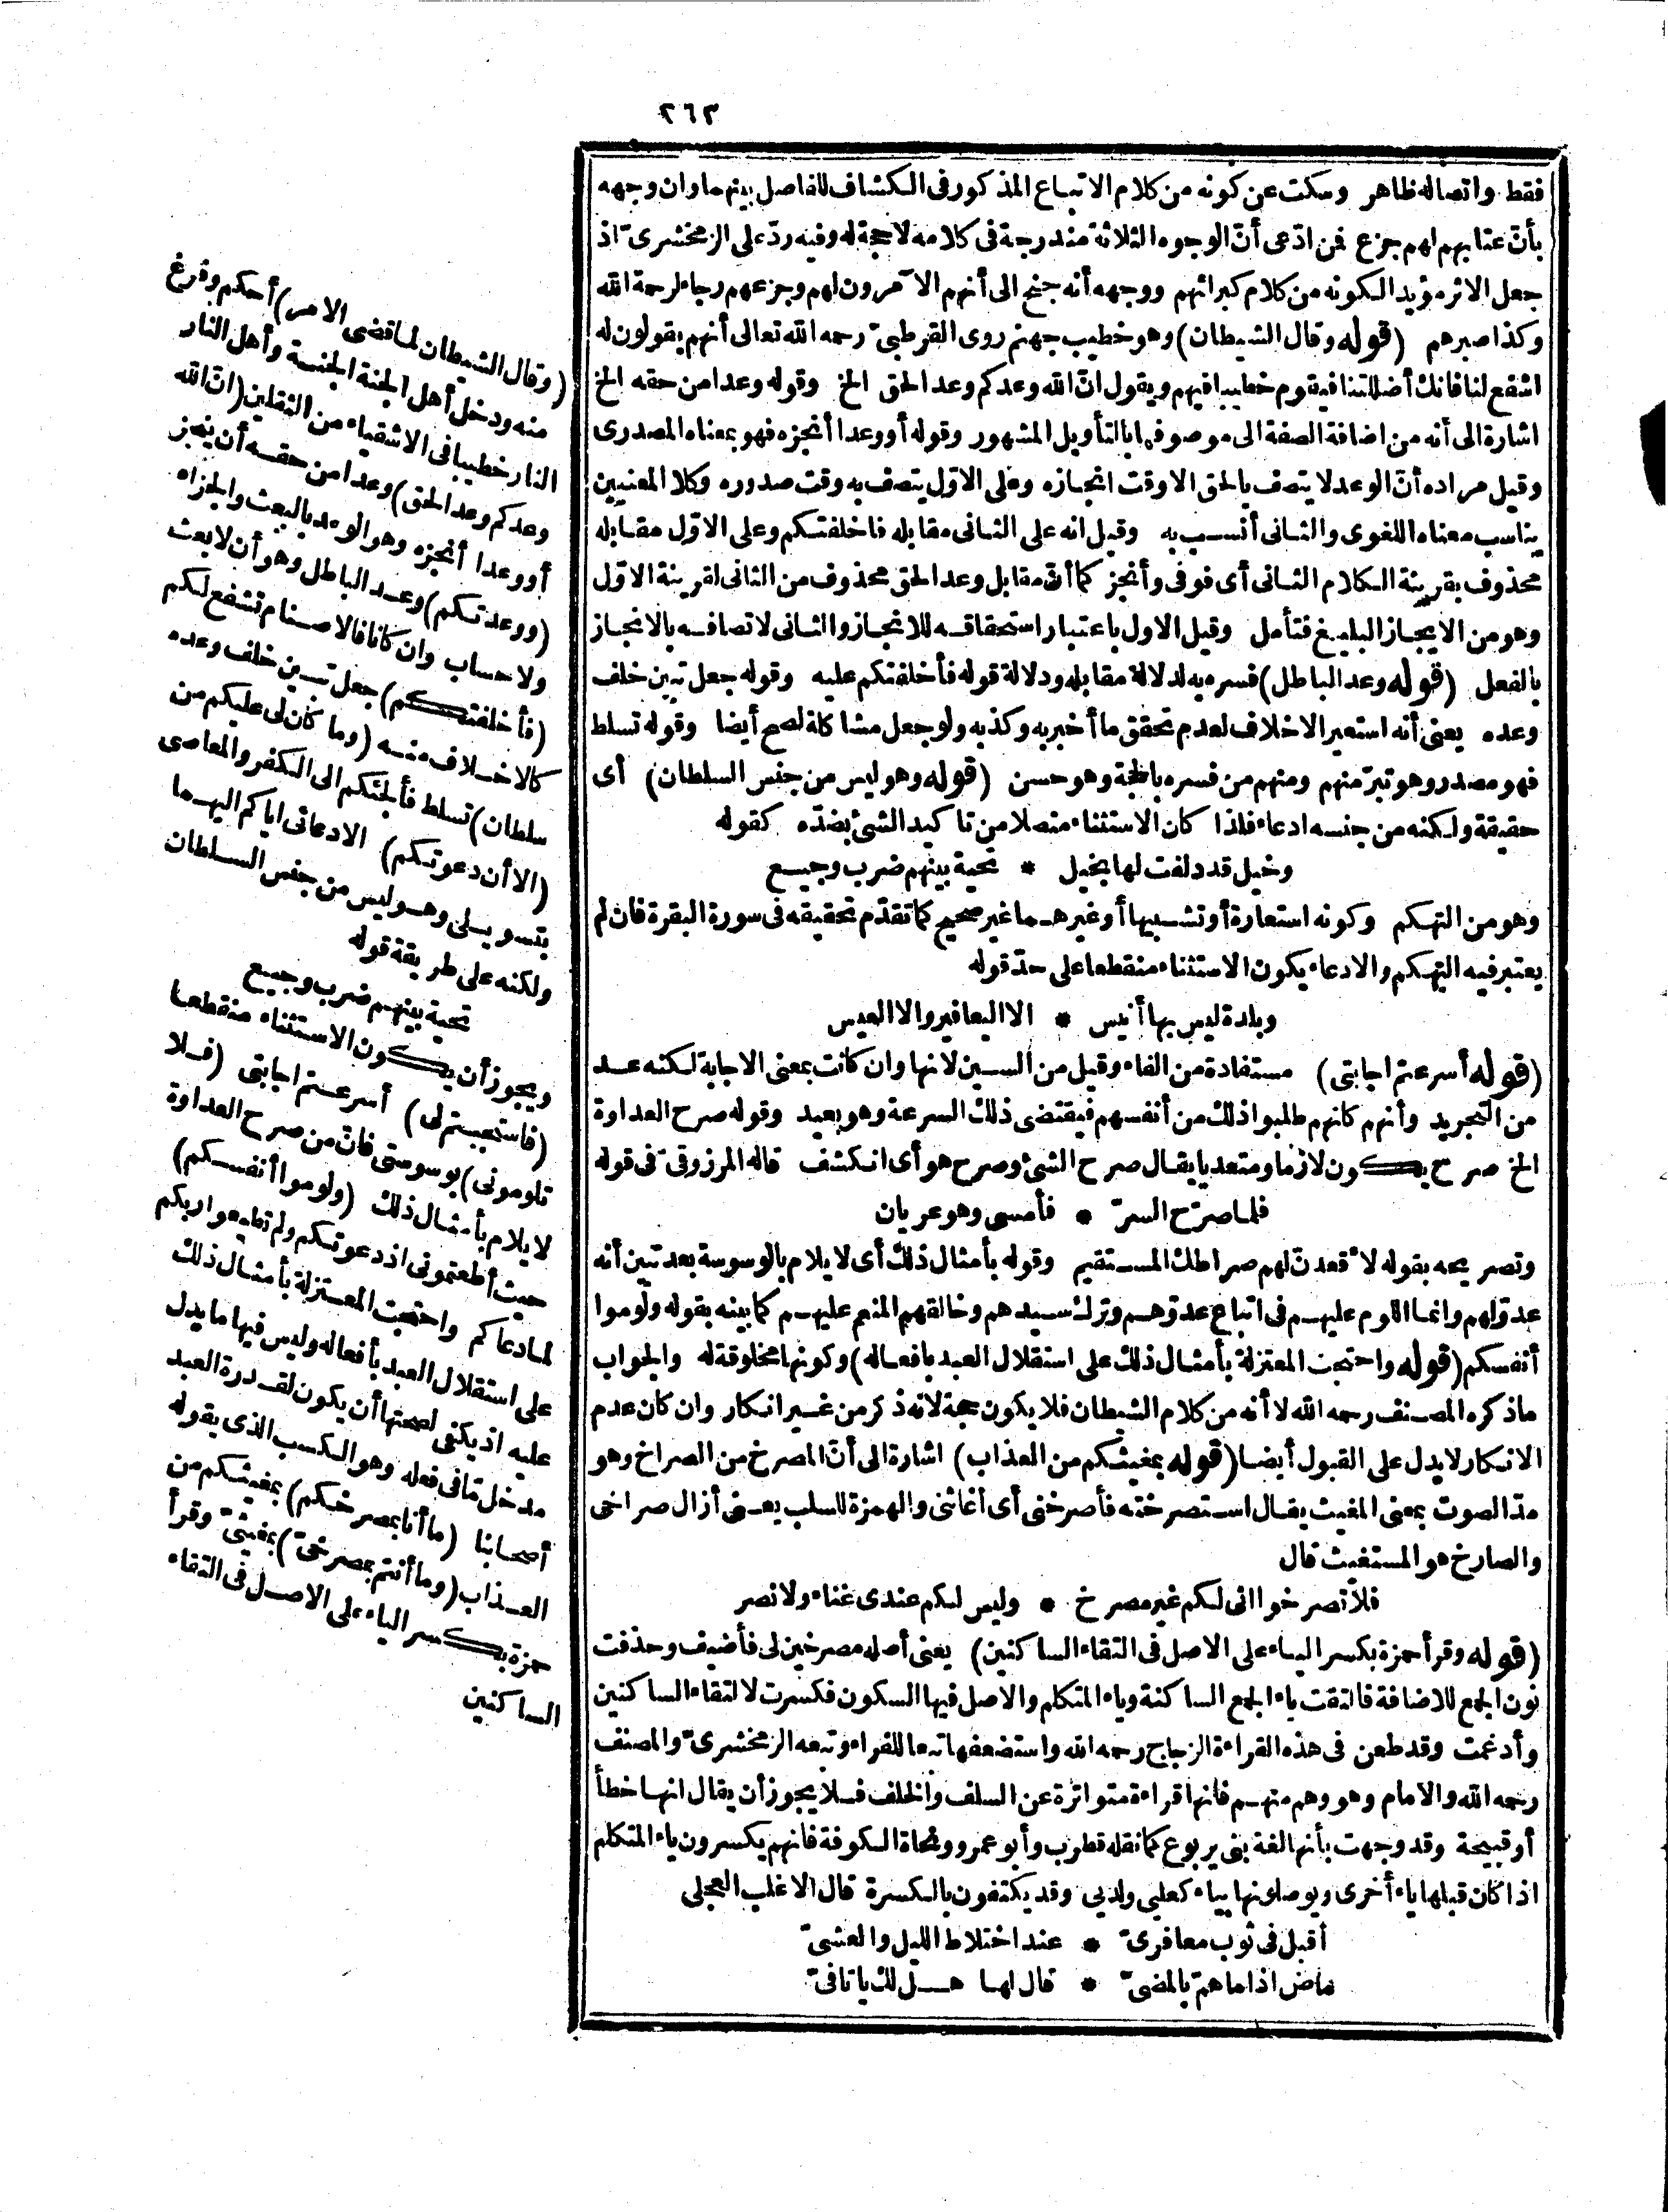 ٢٦٣
فقط واتصاله ظاهر وسكت عن كونه من كلام الاتباع المذكور فى الكشاف للفاصل بينهما وان وجهه
بأن عتابهم لهم جزع فمن ادّعى أنّ الوجوه الثلاثة مندرجة فى كلامه لاحجة له وفيه ردّ على الزمخشرىّ اذ
جعل الاثر مؤيد الكونه من كلام كبرائهم ووجهه أنه جنح الى أنهم الآمرون لهم وجزعهم رجاء لرحمة الله
وكذا صبرهم (قوله وقال الشيطان) وهو خطيب جهنم روى القرطبىّ رحمه الله تعالى أنهم يقولون له
اشفع لنا فانك أضللتنا فيقوم خطيبا فيهم ويقول انّ الله وعدكم وعد الحق الخ وقوله وعدا من حقه الخ
اشارة الى أنه من اضافة الصفة الى موصوفها بالتأويل المشهور وقوله أو وعدا أنجزه فهو بمعناه المصدرى
وقيل مراده أنّ الوعد لا يتصف بالحق الا وقت انجازه وعلى الاوّل يتصف به وقت صدوره وكلا المعنيين
يناسب معناه اللغوى والثانى أنسب به وقيل انه على الثانى مقابله فاخلفتكم وعلى الاوّل مقابله
محذوف بقرينة الكلام الثانى أى فوفى وأنجز كما أنّ مقابل وعد الحق محذوف من الثانى لقرينة الاوّل
وهو من الايجاز البليغ فتأمل وقيل الاول باعتبار استحقاقه للانجاز والثانى لاتصافه بالانجاز
بالفعل (قوله وعد الباطل) فسره به لدلالة مقابله ودلالة قوله فأخلفتكم عليه وقوله جعل تبين خلف
وعده يعنى أنه استعير الاخلاف لعدم تحقق ما أخبر به وكذبه ولو جعل مشاكلة لصح أيضا وقوله تسلط
فهو مصدر وهو تبرّ منهم ومنهم من فسره بالحجة وهو حسن (قوله وهو ليس من جنس السلطان) أى
حقيقة ولكنه من جنسه ادعاء فلذا كان الاستثناء متصلا من تاكيد الشئ بضدّه كقوله
وخيل قد دلفت لها بخيل * تحية بينهم ضرب وجيع
وهو من التهكم وكونه استعارة أو تشبيها أو غيرهما غير صحيح كما تقدّم تحقيقه فى سورة البقرة فان لم
يعتبر فيه التهكم والادعاء يكون الاستثناء منقطعا على حدّ قوله
وبلدة ليس بها أنيس * الا اليعافير والا العيس
(قوله أسرعتم اجابتى) مستفادة من الفاء وقيل من السين لانها وان كانت بمعنى الاجابة لكنه عد
من التجريد وأنهم كانهم طلبوا ذلك من أنفسهم فيقتضى ذلك السرعة وهو بعيد وقوله صرح العداوة
الخ صرح يكون لازما ومتعديا يقال صرح الشئ وصرح هو أى انكشف قاله المرزوقىّ فى قوله
فلما صرّح السرّ * فأمسى وهو عريان
وتصريحه بقوله لاقعدنّ لهم صراطك المستقيم وقوله بأمثال ذلك أى لا يلام بالوسوسة بعد تبين أنه
عدوّلهم وانما اللوم عليهم فى اتباع عدوّهم وترك سيدهم وخالقهم المنعم عليهم كما بينه بقوله ولوموا
أنفسكم (قوله واحتجت المعتزلة بأمثال ذلك على استقلال العبد بافعاله) وكونها مخلوقة له والجواب
ما ذكره المصنف رحمه الله لا أنه من كلام الشيطان فلا يكون حجة لانه ذكر من غير انكار وان كان عدم
الانكار لا يدل على القبول أيضا (قوله بمغيثكم من العذاب) اشارة الى أنّ المصرخ من الصراخ وهو
مدّ الصوت بمعنى المغيث يقال استصرخته فأصرخنى أى أغاثنى والهمزة للسلب يعنى أزال صراخى
والصارخ هو المستغيث قال
فلا تصرخوا انى لكم غير مصرخ * وليس لكم عندى غناء ولا نصر
(قوله وقرأ حمزة بكسر الياء على الاصل فى التقاء الساكنين) يعنى أصله مصرخين لى فأضيف وحذفت
نون الجمع للاضافة فالتقت ياء الجمع الساكنة وياء المتكلم والاصل فيها السكون فكسرت لالتقاء الساكنين
وأدغمت وقد طعن فى هذه القراءة الزجاج رحمه الله واستضعفها تبعا للفراء وتبعه الزمخشرىّ والمصنف
رحمه الله والامام وهو وهم منهم فانها قراءة متواترة عن السلف والخلف فلا يجوز أن يقال انها خطأ
أو قبيحة وقد وجهت بأنها لغة بنى يربوع كما نقله قطرب وأبو عمرو ونحاة الكوفة فانهم يكسرون ياء المتكلم
اذا كان قبلها ياء أخرى ويوصلونها بياء كعليى ولديى وقد يكتفون بالكسرة قال الاغلب العجلى
أقبل فى ثوب معافرىّ * عند اختلاط الليل والعشىّ
ماض اذا ما همّ بالمضىّ * قال لها هل لك يا تا فىّ
(وقال الشيطان لما قضى الامر) أحكم وفرغ
منه ودخل أهل الجنة الجنة وأهل النار
النار خطيبا فى الاشقياء من الثقلين (انّ الله
وعدكم وعد الحق) وعدا من حقه أن ينجز
أو وعدا أنجزه وهو الوعد بالبعث والجزاء
(ووعدتكم) وعد الباطل وهو أن لا بعث
ولا حساب وان كانا فالاصنام تشفع لكم
(فأخلفتكم) جعل تبين خلف وعده
كالاخلاف منه (وما كان لى عليكم من
سلطان) تسلط فألجئكم الى الكفر والمعاصى
(الا أن دعوتكم) الا دعائى اياكم اليهما
بتسويلى وهو ليس من جنس السلطان
ولكنه على طريقة قوله
تحية بينهم ضرب وجيع
ويجوز أن يكون الاستثناء منقطعا
(فاستجبتم لى) أسرعتم اجابتى (فلا
تلومونى) بوسوستى فانّ من صرح العداوة
لا يلام بأمثال ذلك (ولوموا أنفسكم)
حيث أطعتمونى اذ دعوتكم ولم تطيعوا ربكم
لما دعاكم واحتجت المعتزلة بأمثال ذلك
على استقلال العبد بأفعاله وليس فيها ما يدل
عليه اذ يكفى لصحتها أن يكون لقدرة العبد
مدخل مّا فى فعله وهو الكسب الذى يقوله
أصحابنا (ما أنا بمصرخكم) بمغيثكم من
العذاب (وما أنتم بمصرخىّ) بمغيثىّ وقرأ
حمزة بكسر الياء على الاصل فى التقاء
الساكنين